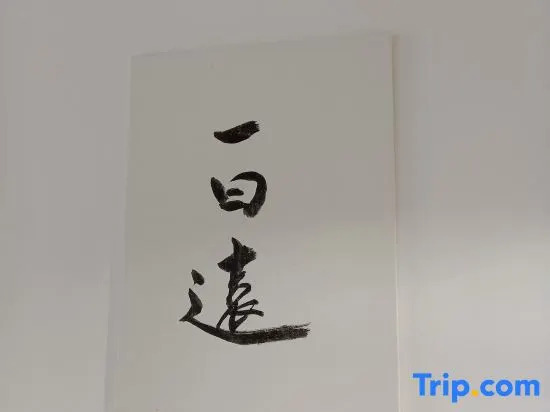 一曰遠
Trip.com